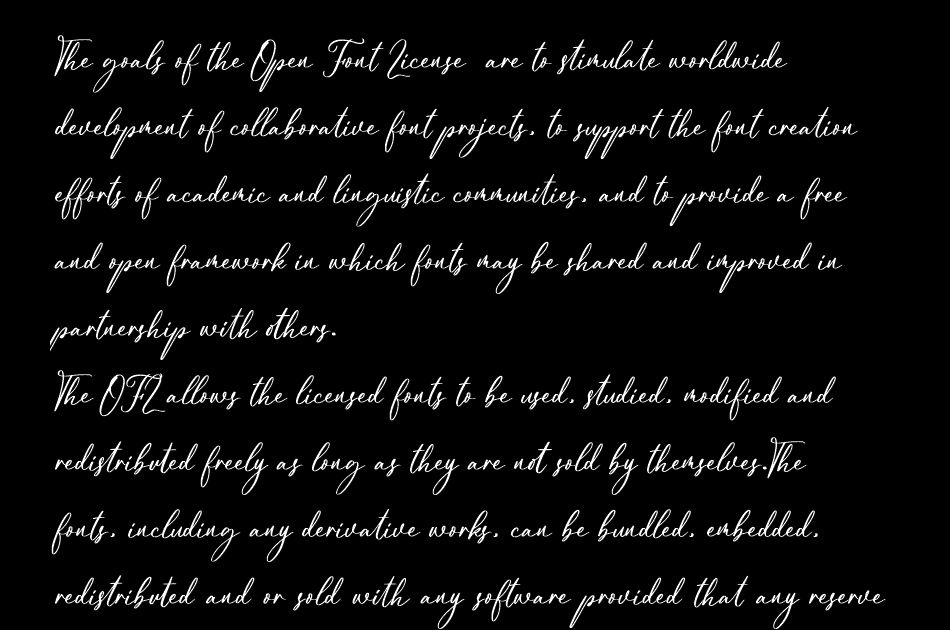 The goals of the Open Font License are to stimulate worldwide
development of collaborative font projects, to support the font creation
efforts of academic and linguistic communities, and to provide a free
and open framework in which fonts may be shared and improved in
partnership with others.
The OFL allows the licensed fonts to be used, studied, modified and
redistributed freely as long as they are not sold by themselves.The
fonts, including any derivative works, can be bundled, embedded,
redistributed and or sold with any software provided that any reserve